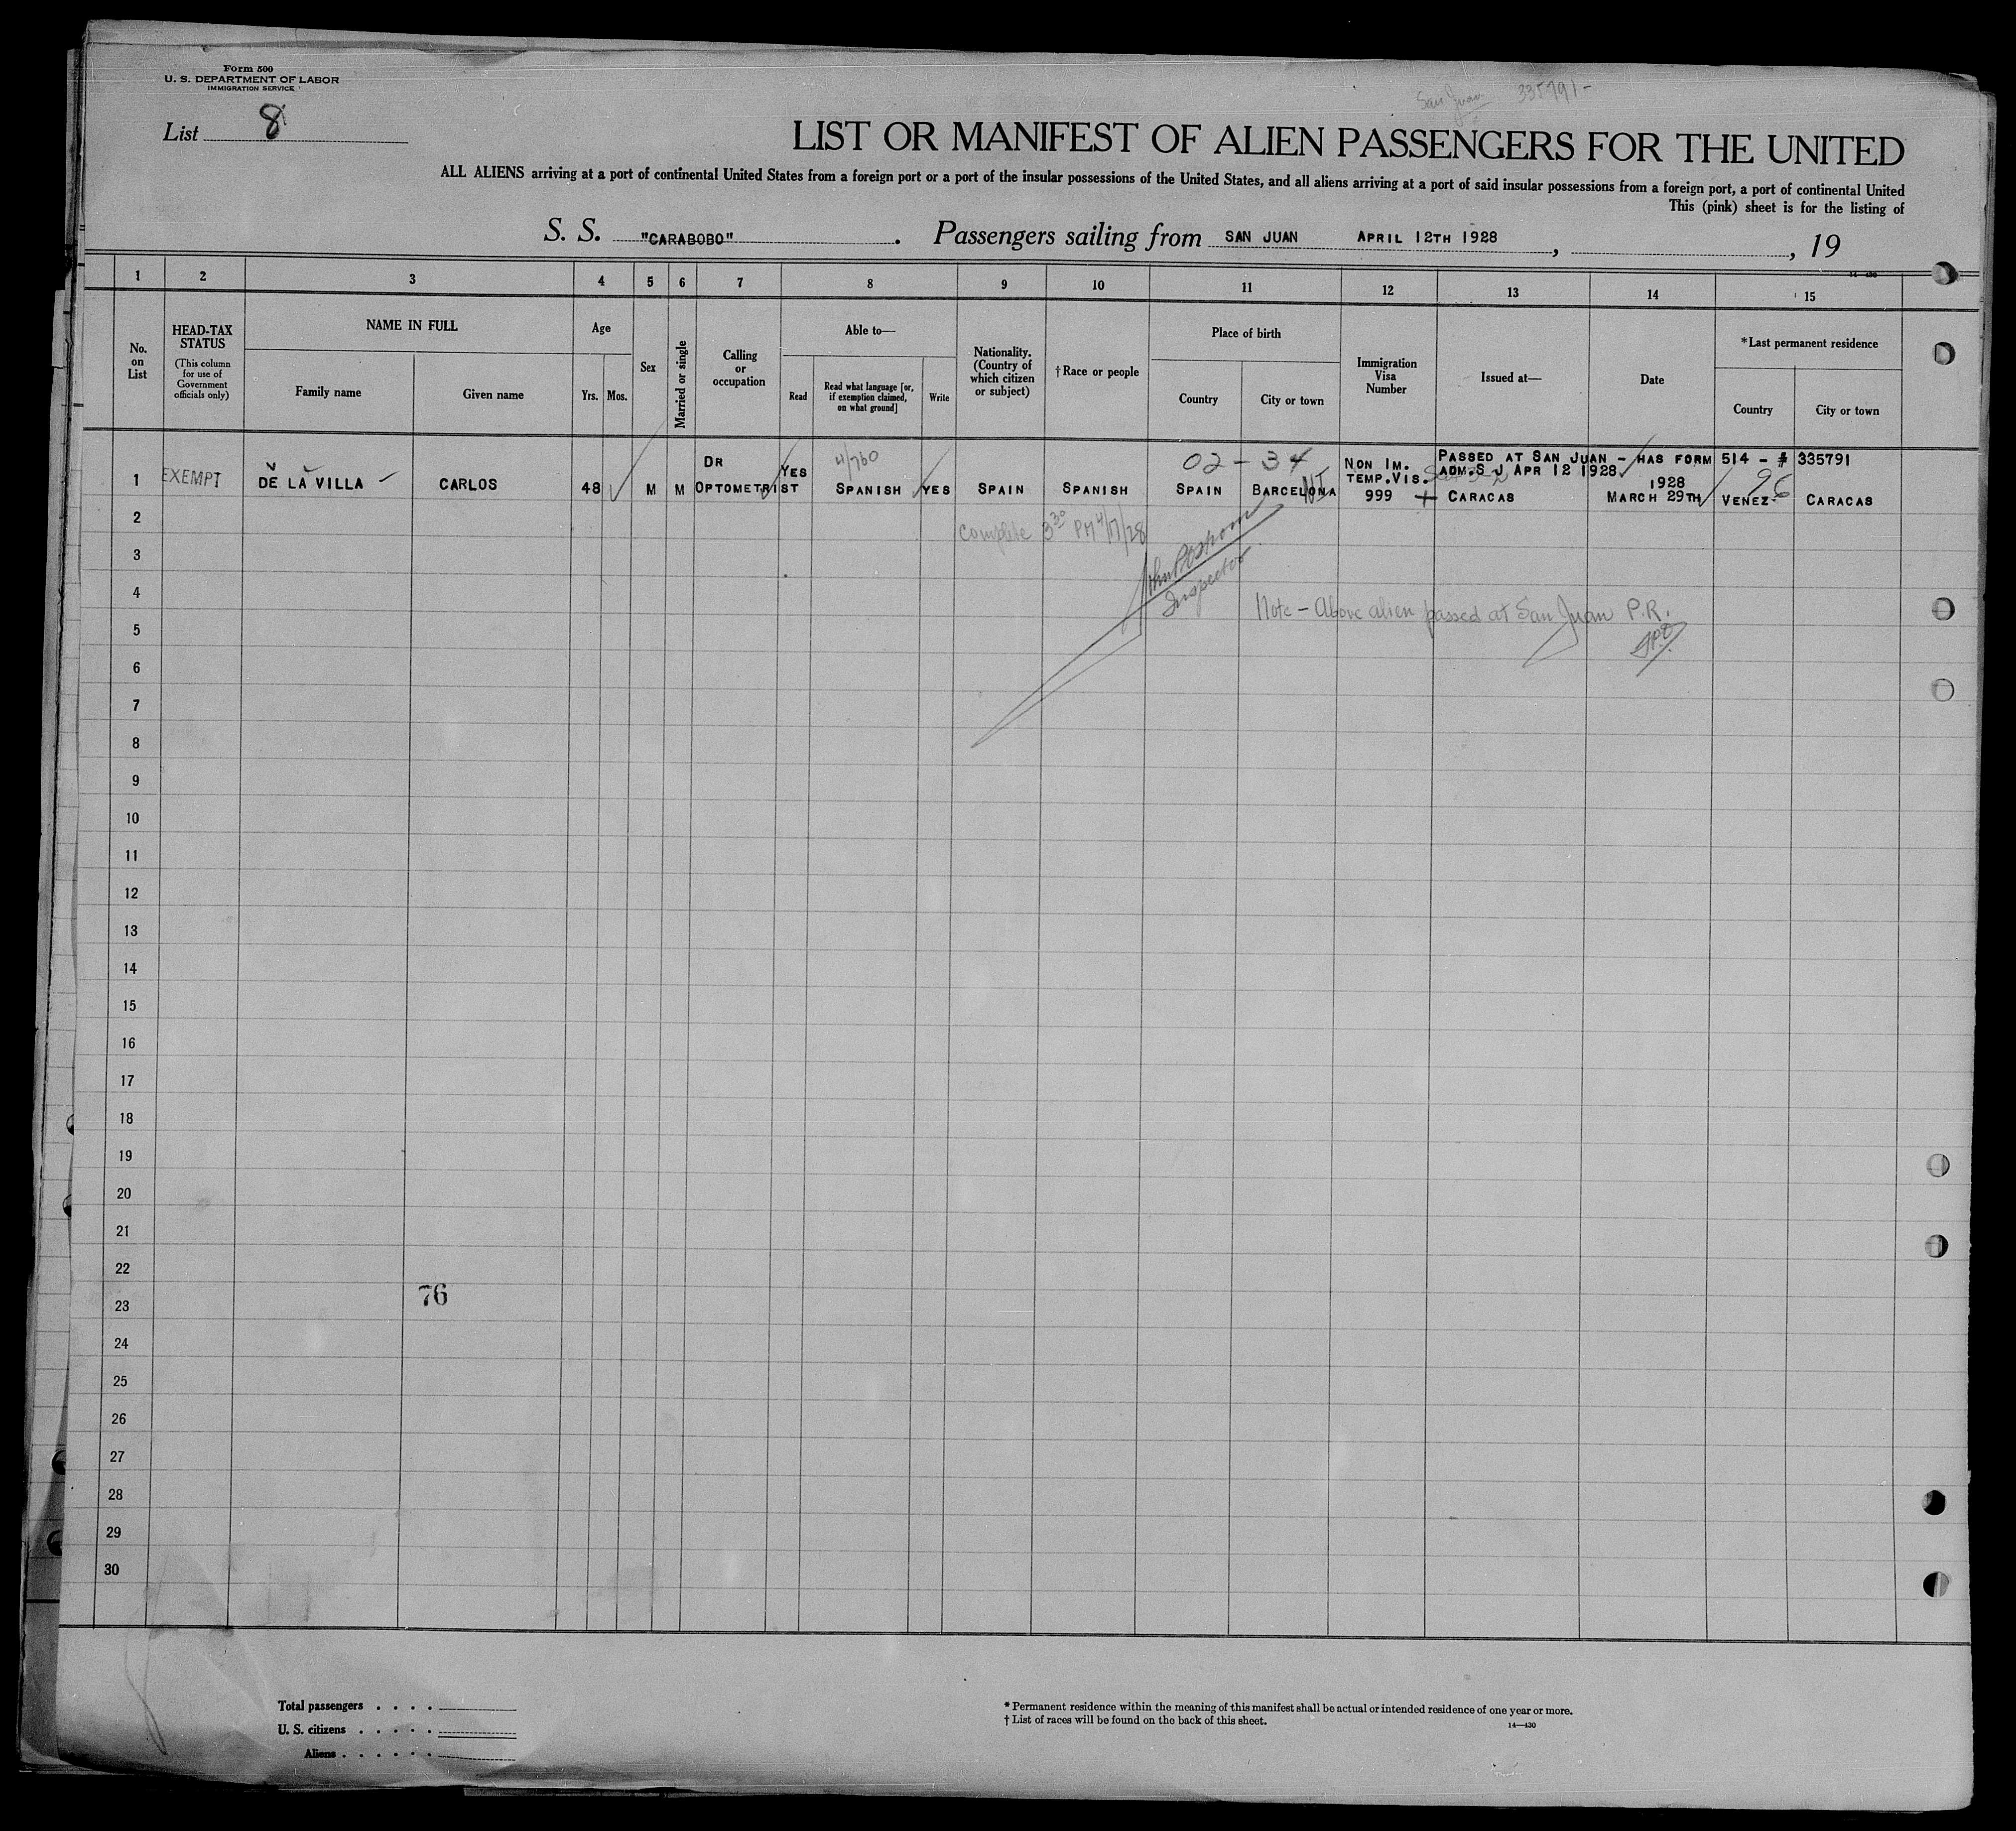 Form 500
U. S. DEPARTMENT OF LABOR
IMMIGRATION SERVICE
San Juan 335791-
List 8
LIST OR MANIFEST OF ALIEN PASSENGERS FOR THE UNITED
ALL ALIENS arriving at a port of continental United States from a foreign port or a port of the insular possessions of the United States, and all aliens arriving at a port of said insular possessions from a foreign port, a port of continental United
This (pink) sheet is for the listing of
S. S. "CARABOBO". Passengers sailing from SAN JUAN APRIL 12TH 1928, , 19
14—430
1 2 3 4 5 6 7 8 9 10 11 12 13 14 15
No. on List
HEAD-TAX STATUS
(This column for use of Government officials only)
NAME IN FULL
Family name
Given name
Age
Yrs.
Mos.
Sex
Married or single
Calling or occupation
Able to—
Read
Read what language [or, if exemption claimed, on what ground]
Write
Nationality. (Country of which citizen or subject)
†Race or people
Place of birth
Country
City or town
Immigration Visa Number
Issued at—
Date
*Last permanent residence
Country
City or town
4/760
02 - 34
PASSED AT SAN JUAN - HAS FORM 514 - # 335791
NON IM. ADM. S J APR 12 1928
TEMP. VIS. 1928 96
1 EXEMPT DE LA VILLA CARLOS 48 M M DR OPTOMETRIST YES SPANISH YES SPAIN SPANISH SPAIN BARCELONA NI 999 CARACAS MARCH 29TH VENEZ- CARACAS
2
Complete 3 30 PM 4/17/28
3
4
Inspector
Note - Above alien passed at San Juan P.R.
5
6
7
8
9
10
11
12
13
14
15
16
17
18
19
20
21
22
76
23
24
25
26
27
28
29
30
Total passengers . . . .
U. S. citizens . . . . .
Aliens . . . . . .
* Permanent residence within the meaning of this manifest shall be actual or intended residence of one year or more.
† List of races will be found on the back of this sheet.
14—430